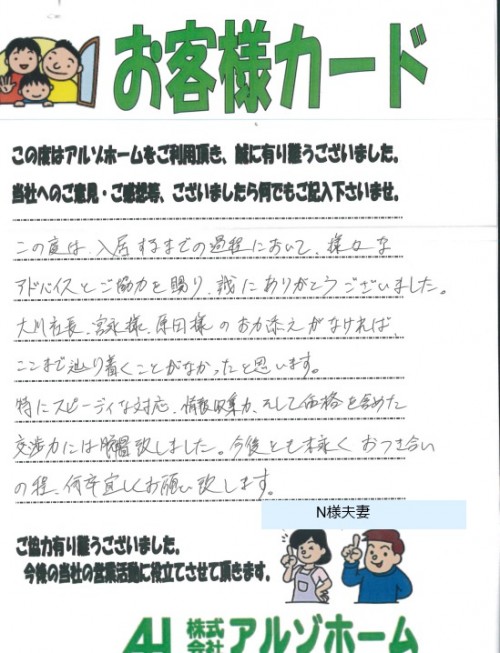 お客様カード
この度はアルゾホームをご利用頂き、誠に有り難うございました。
当社へのご意見・ご感想等、ございましたら何でもご記入下さいませ。
この度は、入居するまでの過程において、様々な
アドバイスとご協力を賜り、誠にありがとうございました。
大川社長、宮永様、原田様のお力添えがなければ、
ここまで辿り着くことがなかったと思います。
特にスピーディな対応、情報収集力、そして価格を含めた
交渉力には脱帽致しました。今後とも末永くおつき合い
の程、何卒宜しくお願い致します。
N様夫妻
ご協力有り難うございました。
今後の当社の営業活動に役立てさせて頂きます。
AH 株式会社 アルゾホーム